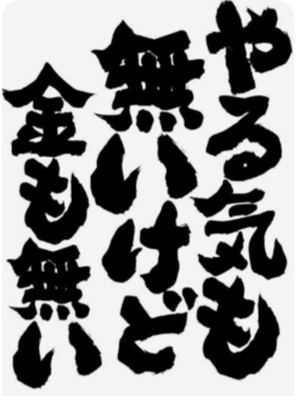 やる気も
無いけど
金も無い